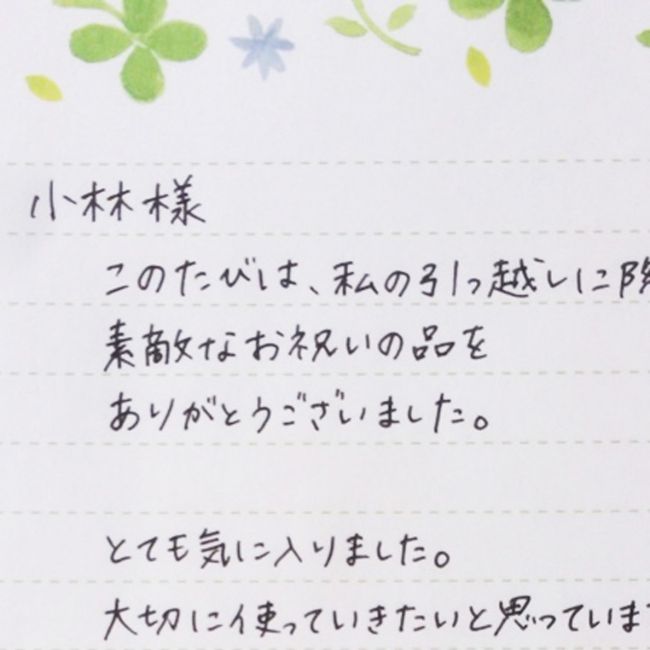 小林様
このたびは、私の引っ越しに際
素敵なお祝いの品を
ありがとうございました。
とても気に入りました。
大切に使っていきたいと思っていま